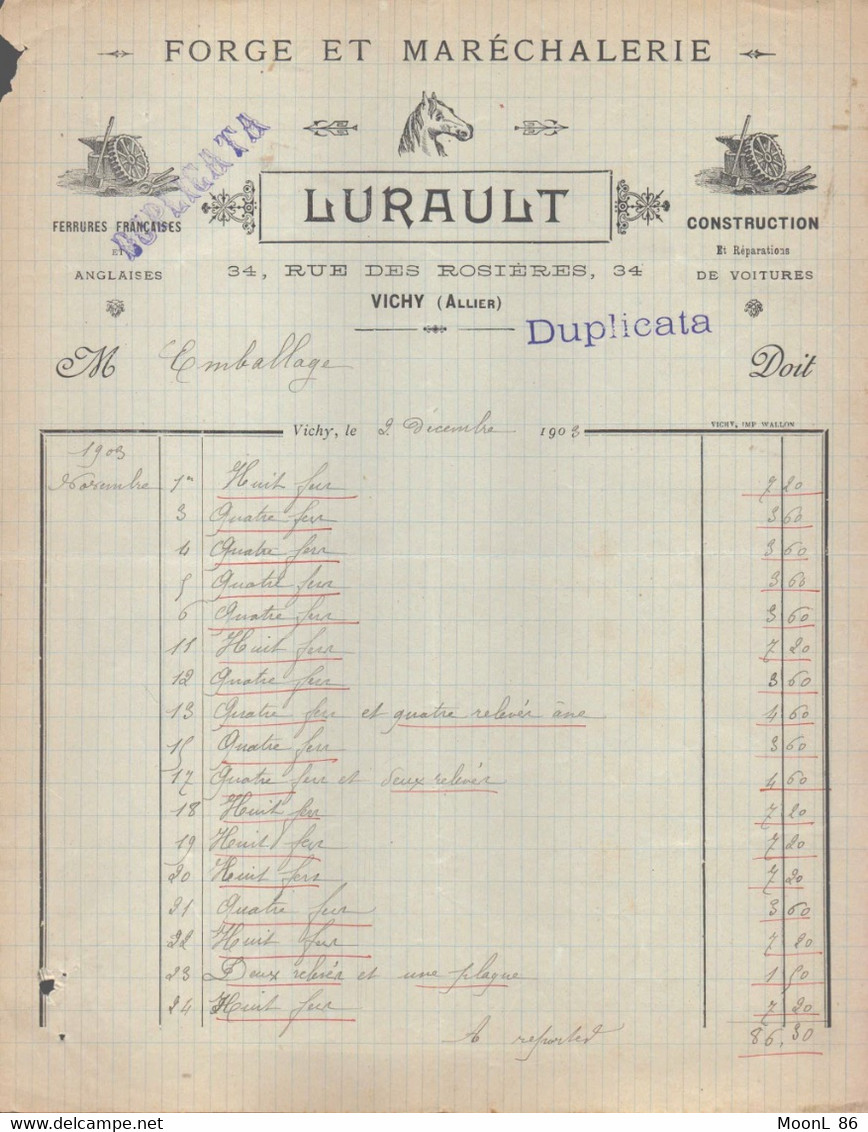 FORGE ET MARÉCHALERIE
DUPLICATA
LURAULT
FERRURES FRANÇAISES
ET
ANGLAISES
CONSTRUCTION
Et Réparations
DE VOITURES
34, RUE DES ROSIÈRES, 34
VICHY (ALLIER)
Duplicata
M Emballage Doit
Vichy, le 2 Décembre 1903
VICHY, IMP WALLON
1903
Novembre 1er Huit fers 7 20
3 Quatre fers 3 60
4 Quatre fers 3 60
5 Quatre fers 3 60
6 Quatre fers 3 60
11 Huit fers 7 20
12 Quatre fers 3 60
13 Quatre fers et quatre relevés âne 4 60
15 Quatre fers 3 60
17 Quatre fers et deux relevés 4 60
18 Huit fers 7 20
19 Huit fers 7 20
20 Huit fers 7 20
21 Quatre fers 3 60
22 Huit fers 7 20
23 Deux relevés et une plaque 1 50
24 Huit fers 7 20
A reporter 86,30
MoonL 86